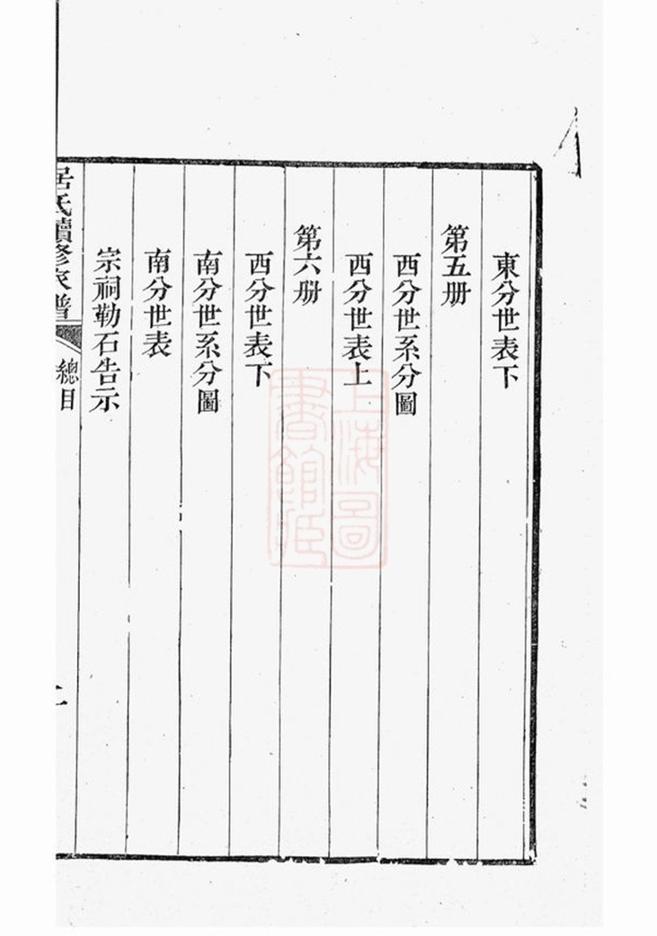 東分世表下
第五册
西分世系分圖
西分世表上
第六册
西分世表下
南分世系分圖
南分世表
宗祠勒石告示
居氏續修家譜
總目
上海圖
書館藏